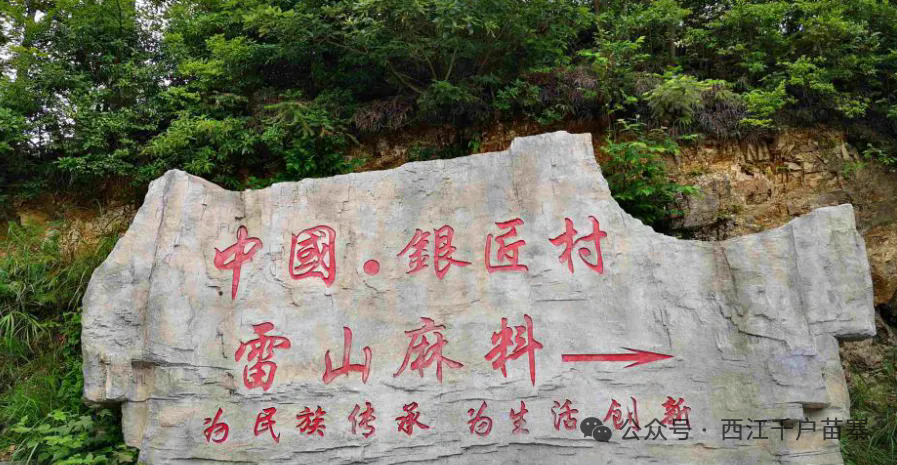 中國·銀匠村
雷山麻料
为民族传承 为生活创新
公众号·西江千户苗寨